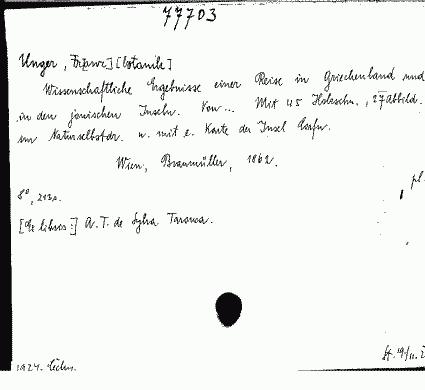 77703
Unger, Franz] [botanik]
Wissenschaftliche Ergebnisse einer Reise in Griechenland und
in den jonischen Inseln. Von... Mit 45 Holzschn., 27 Abbild.
im Naturselbstdr. u. mit e. Karte der Insel Corfu.
Wien, Braumüller, 1862.
pl.
8°, 213 s.
[Ex libris:] A. T. de Sylva Tarouca.
1924.